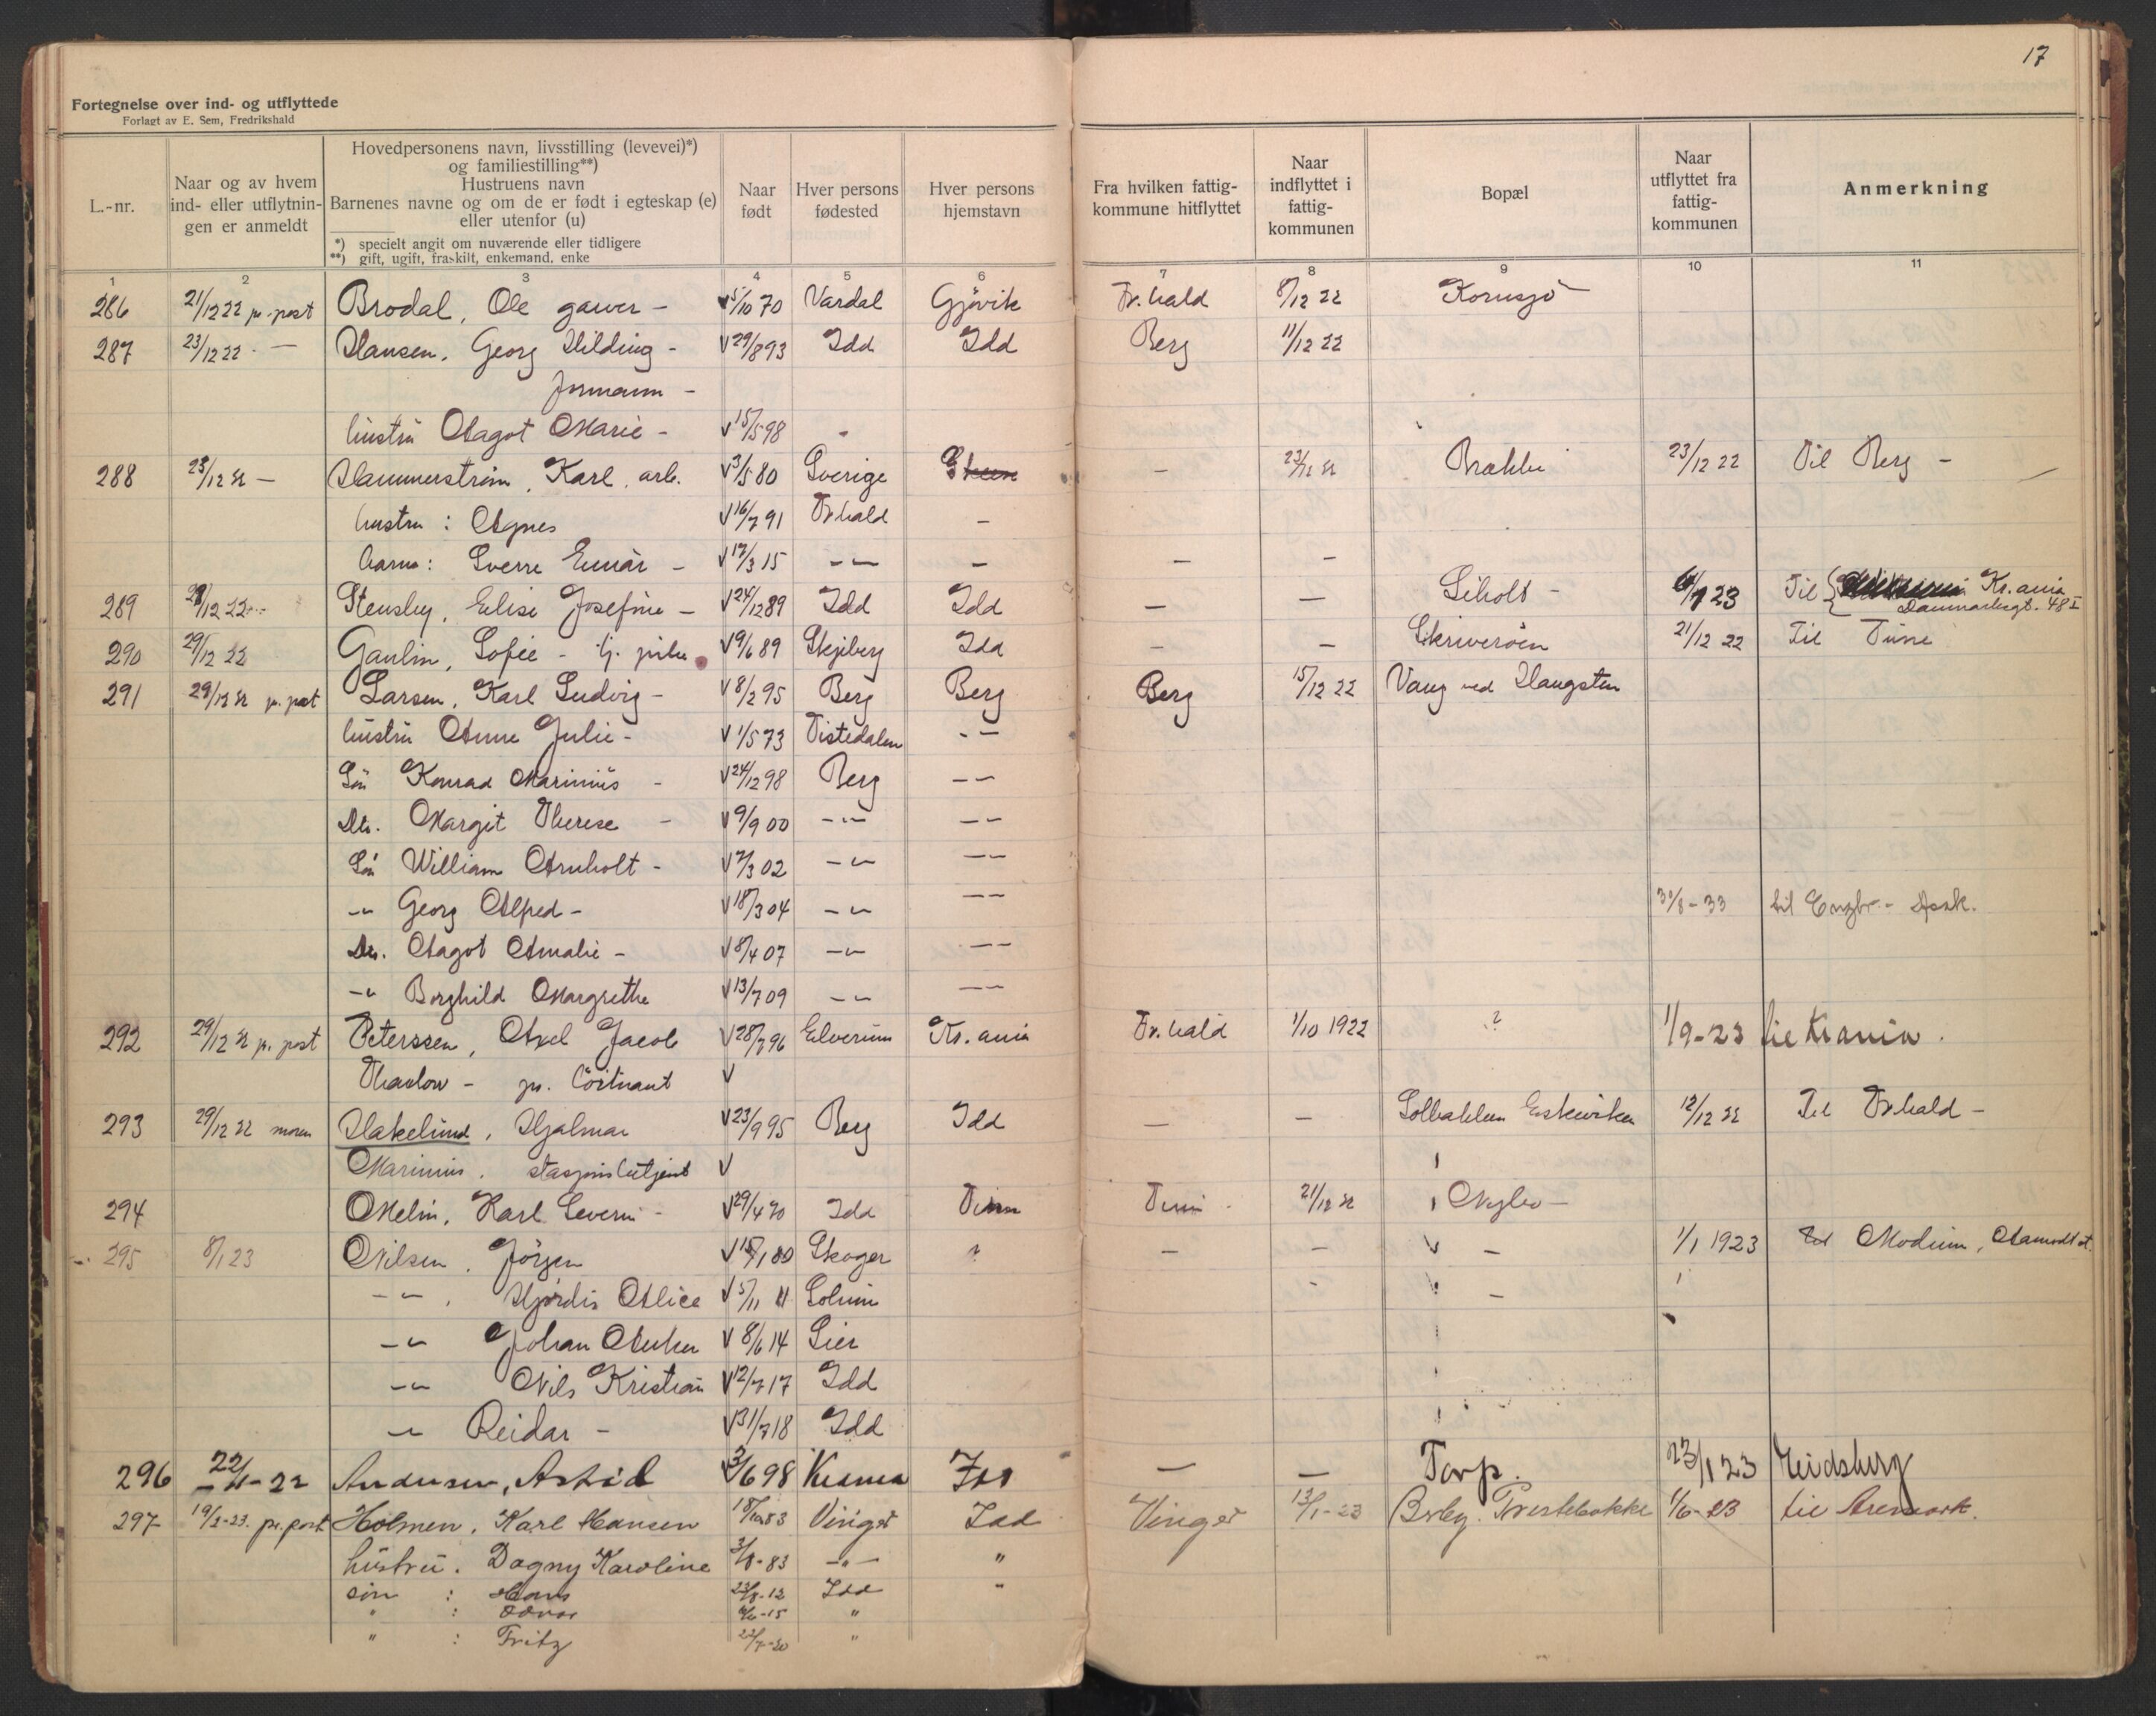 17
Fortegnelse over ind- og utflyttede
Forlagt av E. Sem, Fredrikshald
L.-nr.
Naar og av hvem ind- eller utflytnin- gen er anmeldt
Hovedpersonens navn, livsstilling (levevei)*)
og familiestilling**)
Hustruens navn
Barnenes navne og om de er født i egteskap (e)
eller utenfor (u)
*) specielt angit om nuværende eller tidligere
**) gift, ugift, fraskilt, enkemand, enke
Naar født
Hver persons fødested
Hver persons hjemstavn
Fra hvilken fattig- kommune hitflyttet
Naar indflyttet i fattig- kommunen
Bopæl
Naar utflyttet fra fattig- kommunen
Anmerkning
1 2 3 4 5 6 7 8 9 10 11
286 21/12 22 pr. post Brodal, Ole garver - 5/10 70 Vardal Gjøvik Fr.hald 8/12 22 Kornsjø
287 23/12 22 - Hansen, Georg Hilding - V 29/8 93 Idd Idd Berg 11/12 22
Formann -
hustru Aagot Marie - V 15/5 98 -
288 23/12 22 - Hammerstrøm, Karl, arb. V 3/5 80 Sverige - 23/12 22 Brække 23/12 22 Til Berg -
hustru : Agnes V 16/7 91 Fr.hald -
barn : Sverre Einar - V 17/3 15 - - - - -
289 28/12 22 - Stensby, Elise Josefine - V 24/12 89 Idd Idd - - Liholt - 23 Til Kr.ania
Danmarksgt. 48 I
290 29/12 22 Gaulin, Sofie - tj. pike V 9/6 89 Skjeberg Idd - - Skriverøen 21/12 22 Til Tune
291 29/12 22 pr. post Larsen, Karl Ludvig - V 8/2 95 Berg Berg Berg 15/12 22 Vang ved Haugsten
hustru Anne Julie - V 1/5 73 Tistedalen - -
Søn Konrad Marinius - V 24/12 98 Berg - -
Dtr. Margit Therese - V 9/9 00 - - - -
Søn William Arnholt - V 7/3 02 - - - -
- " Georg Alfred - V 18/3 04 - - - - 30/8 - 33 til
Dtr. Aagot Amalie - V 8/4 07 - - - -
- " Borghild Margrethe V 13/7 09 - - - -
292 29/12 22 pr. post Peterssen, Axel Jacob V 28/7 96 Elverum Kr.ania Fr.hald 1/10 1922 ? 1/9-23 til Krania.
Thaulow - V
293 29/12 22 moren Hakelund, Hjalmar V 23/9 95 Berg Idd - - Solbakken 12/12 22 Til Fr.hald -
Marinius. stasjonsbetjent V
294 Melin, Karl Severin - V 29/4 70 Idd Tune Tune - 21/12 22 Nybo -
295 8/1 23 Nilsen, Jørgen V 1 80 Skoger " - - - 1/1 1923 til Modum, Aamodt st.
- " . Hjørdis Alice V 5/11 11 Solum
- " Johan Anker V 8/6 14 Lier
- " Nils Kristian V 12/7 17 Idd
- " Reidar - V 31/7 18 Idd
296 Andersen, Astrid 3/6 98 Krania Idd - - Torp. 23/1 23 Eidsberg
297 19/2-23. pr. post Holmen, Karl Hansen 83 Vinger Idd Vinger 13/1-23 Bøby. Prestebakke 1/6-23 til Aremark.
hustru. Dagny Karoline 3/8-83 - " - "
søn : Hans 23/8-12 Idd "
" : Odvar 15 "
" : Fritz 22/7-20 "